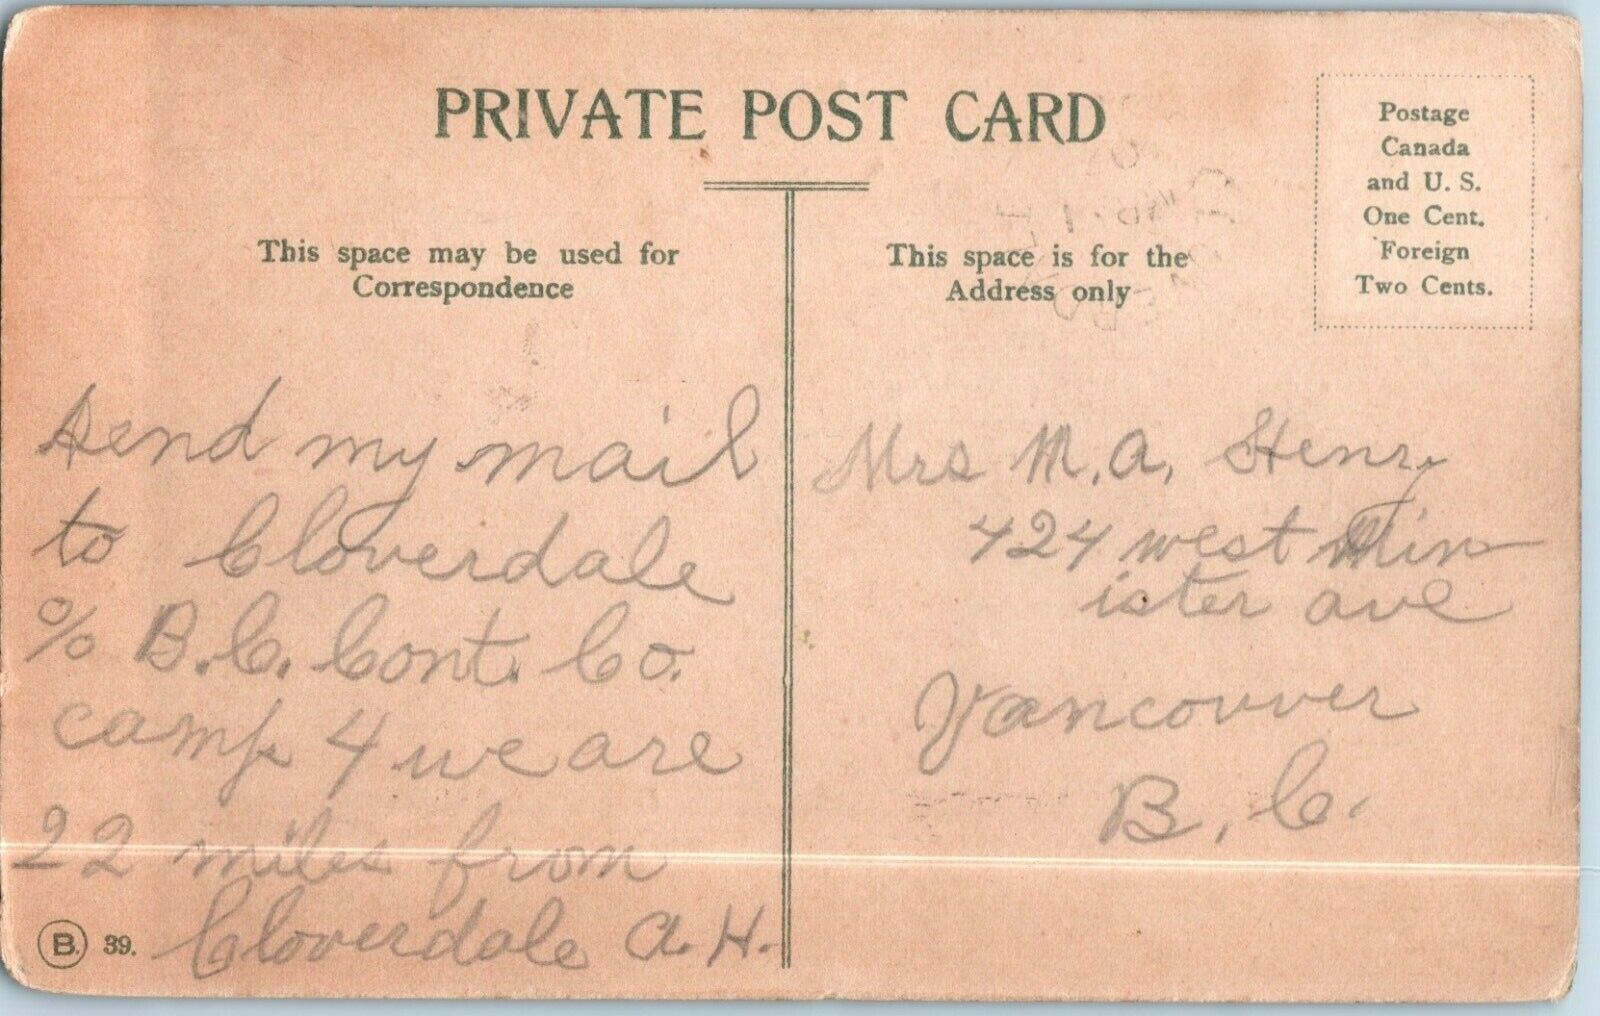 PRIVATE POST CARD
Postage
Canada
and U. S.
One Cent.
Foreign
Two Cents.
This space may be used for
Correspondence
This space is for the
Address only
Send my mail
to Cloverdale
c/o B.C. Cont. Co.
camp 4 we are
22 miles from
Cloverdale A.H.
Mrs M.A. Henry
424 west Min
ister ave
Vancouver
B.C.
B. 39.